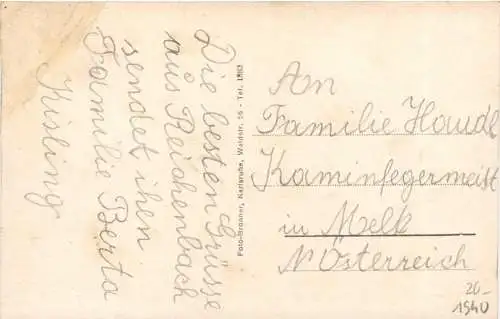 Die besten Grüsse
aus Reichenbach
sendet ihen
Familie Berta
Kisling
Foto-Brenner, Karlsruhe, Waldstr. 56 - Tel.
Am
Familie Haudl
Kaminfegermeist
in Melk
N Österreich
20-
1940